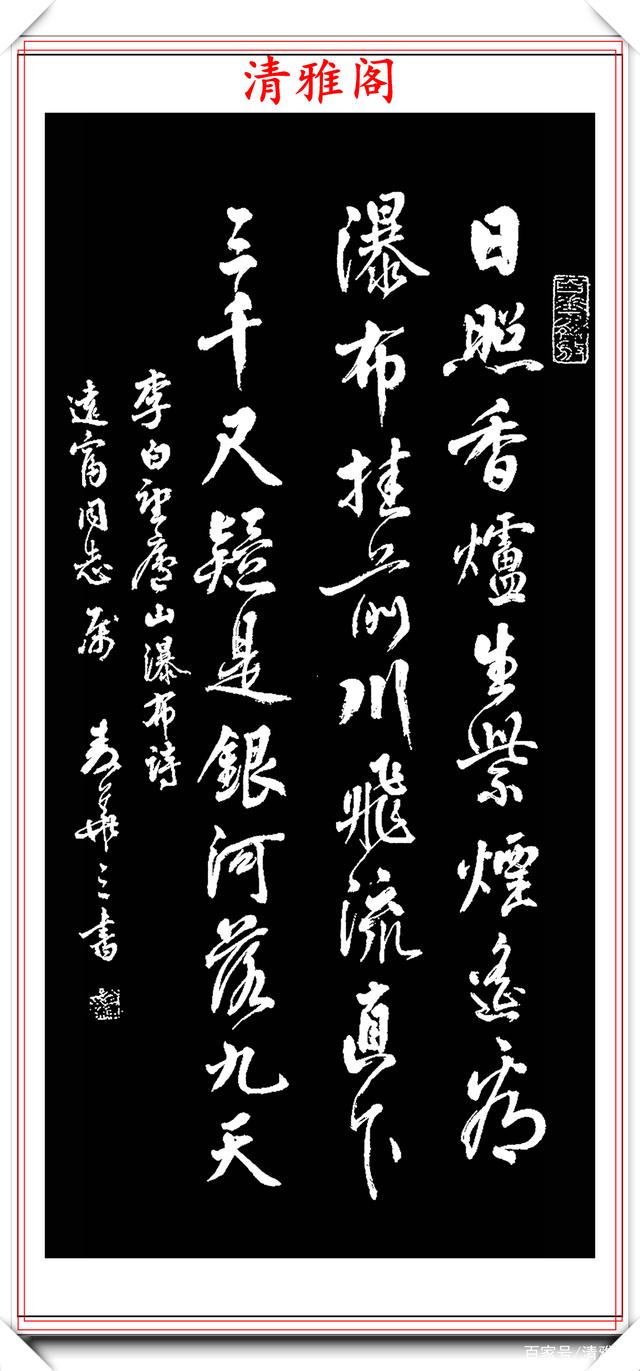 清雅阁
日照香爐生紫煙遙看
瀑布挂前川飛流直下
三千尺疑是銀河落九天
李白望廬山瀑布詩
遠富同志屬 麦華三書
百家号/清雅